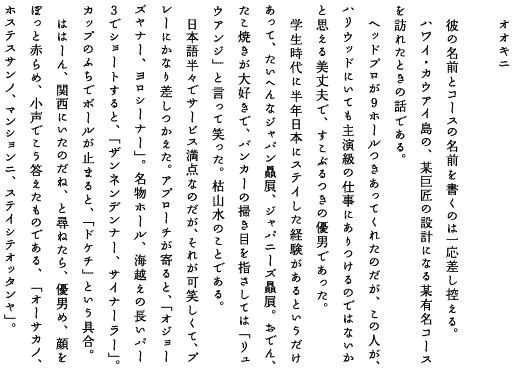 オオキニ
彼の名前とコースの名前を書くのは一応差し控える。
ハワイ・カウアイ島の、某巨匠の設計になる某有名コース
を訪れたときの話である。
ヘッドプロが９ホールつきあってくれたのだが、この人が、
ハリウッドにいても主演級の仕事にありつけるのではないか
と思える美丈夫で、すこぶるつきの優男であった。
学生時代に半年日本にステイした経験があるというだけ
あって、たいへんなジャパン贔屓、ジャパニーズ贔屓。おでん、
たこ焼きが大好きで、バンカーの掃き目を指さしては「リュ
ウアンジ」と言って笑った。枯山水のことである。
日本語半々でサービス満点なのだが、それが可笑しくて、プ
レーにかなり差しつかえた。アプローチが寄ると、「オジョー
ズヤナー、ヨロシーナー」。名物ホール、海越えの長いパー
３でショートすると、「ザンネンデンナー、サイナーラー」。
カップのふちでボールが止まると、「ドケチ」という具合。
ははーん、関西にいたのだね、と尋ねたら、優男め、顔を
ぽっと赤らめ、小声でこう答えたものである、「オーサカノ、
ホステスサンノ、マンションニ、ステイシテオッタンヤ」。